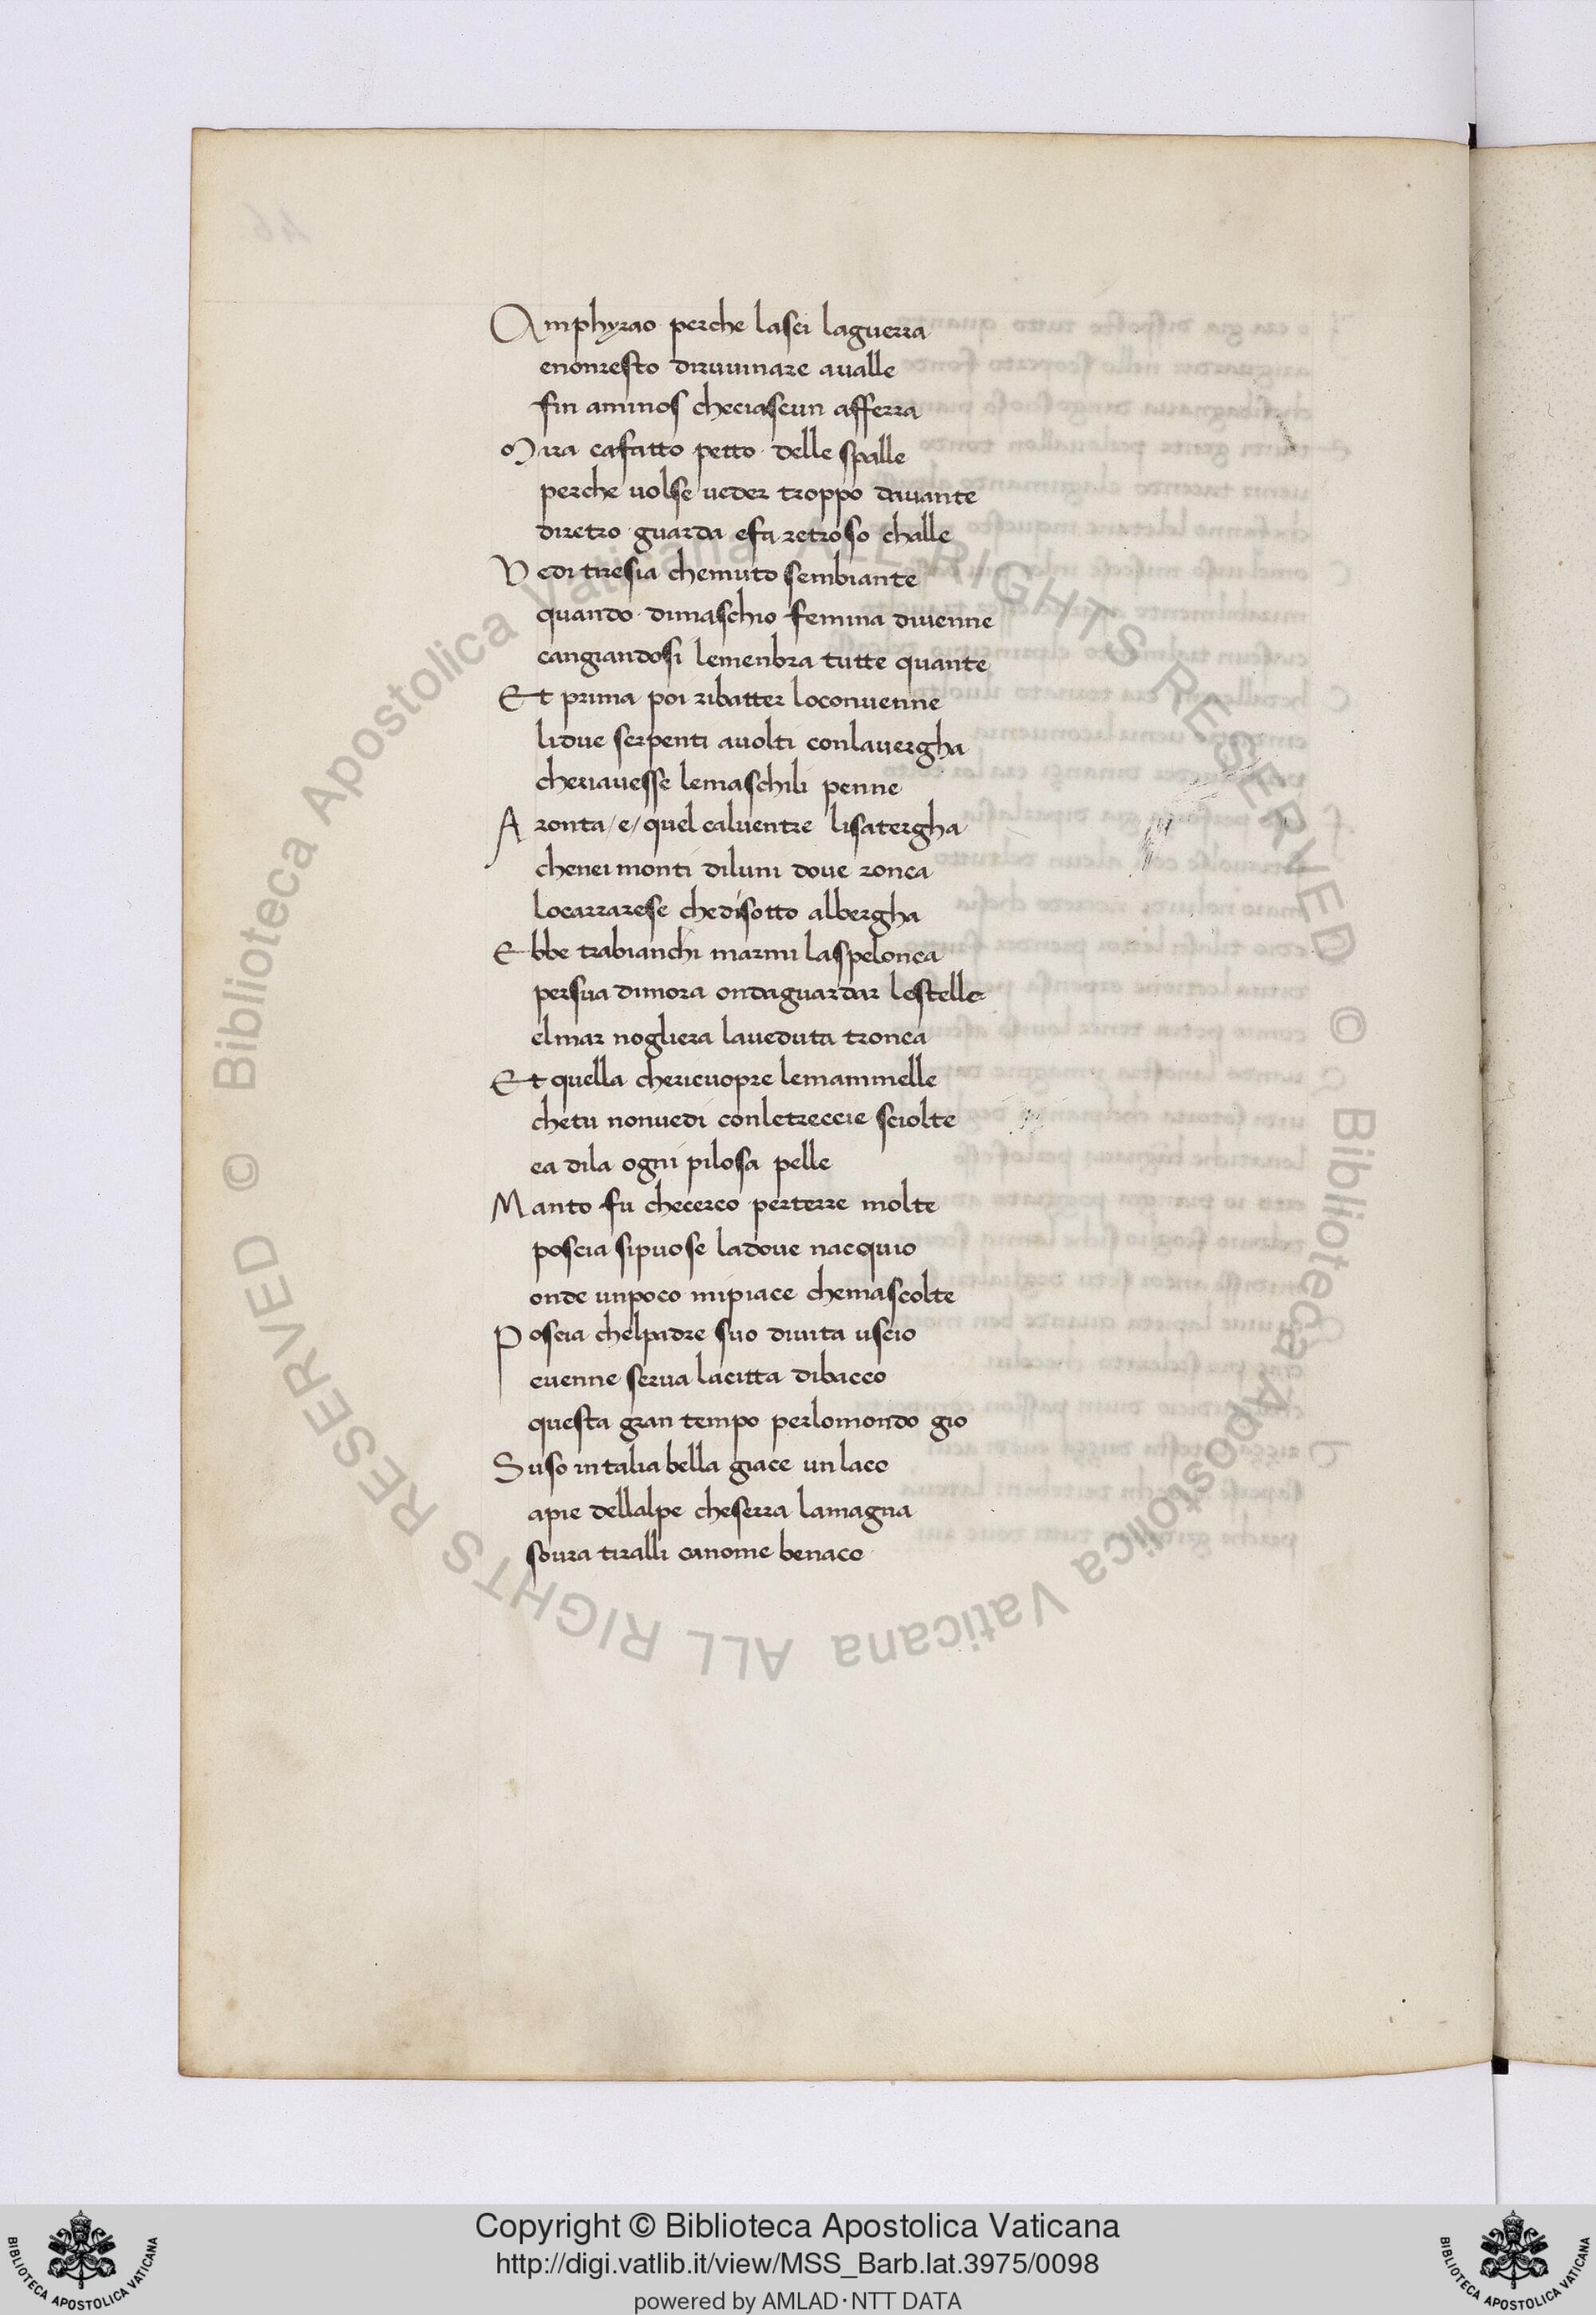 Amphyrao perche lasci laguerra
enonresto diruuinare aualle
fin aminos checiascun afferra
Mira cafatto petto delle spalle
perche uolse ueder troppo dauante
diretro guarda efa retroso challe
Vedi tiresia chemuto sembiante
quando dimaschio femina diuenne
cangiandosi lemenbra tutte quante
Et prima poi ribatter loconuenne
lidue serpenti auolti conlauergha
cheriauesse lemaschili penne
Aronta/e/quel caluentre lisatergha
chenei monti diluni doue ronca
locarrarese chedisotto albergha
Ebbe trabianchi marmi laspelonca
persua dimora ondaguardar lestelle
elmar nogliera laueduta tronca
Et quella chericuopre lemammelle
chetu nonuedi conletreccie sciolte
ea dila ogni pilosa pelle
Manto fu checerco perterre molte
poscia sipuose ladoue nacquio
onde unpoco mipiace chemascolte
Poscia chelpadre suo diuita uscio
euenne serua lacitta dibacco
questa gran tempo perlomondo gio
Suso initalia bella giace un laco
apie dellalpe cheserra lamagna
soura tiralli canome benaco
© Biblioteca Apostolica Vaticana ALL RIGHTS RESERVED © Biblioteca Apostolica Vaticana ALL RIGHTS RESERVED
Copyright © Biblioteca Apostolica Vaticana
http://digi.vatlib.it/view/MSS_Barb.lat.3975/0098
powered by AMLAD·NTT DATA
BIBLIOTECA APOSTOLICA VATICANA
BIBLIOTECA APOSTOLICA VATICANA